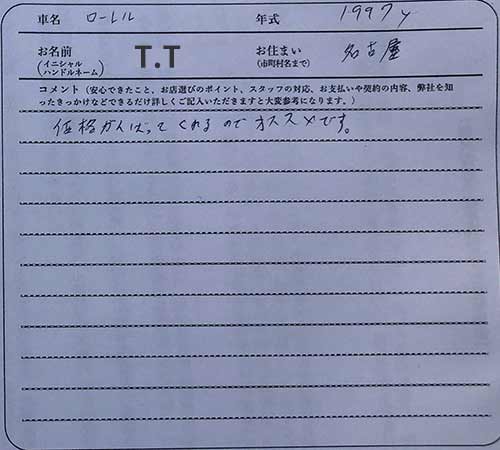 車名 ローレル 年式 1997y
お名前 (イニシャル ハンドルネーム) T.T お住まい (市町村名まで) 名古屋
コメント(安心できたこと、お店選びのポイント、スタッフの対応、お支払いや契約の内容、弊社を知
ったきっかけなどできるだけ詳しくご記入いただきますと大変参考になります。)
価格がんばってくれるのでオススメです。